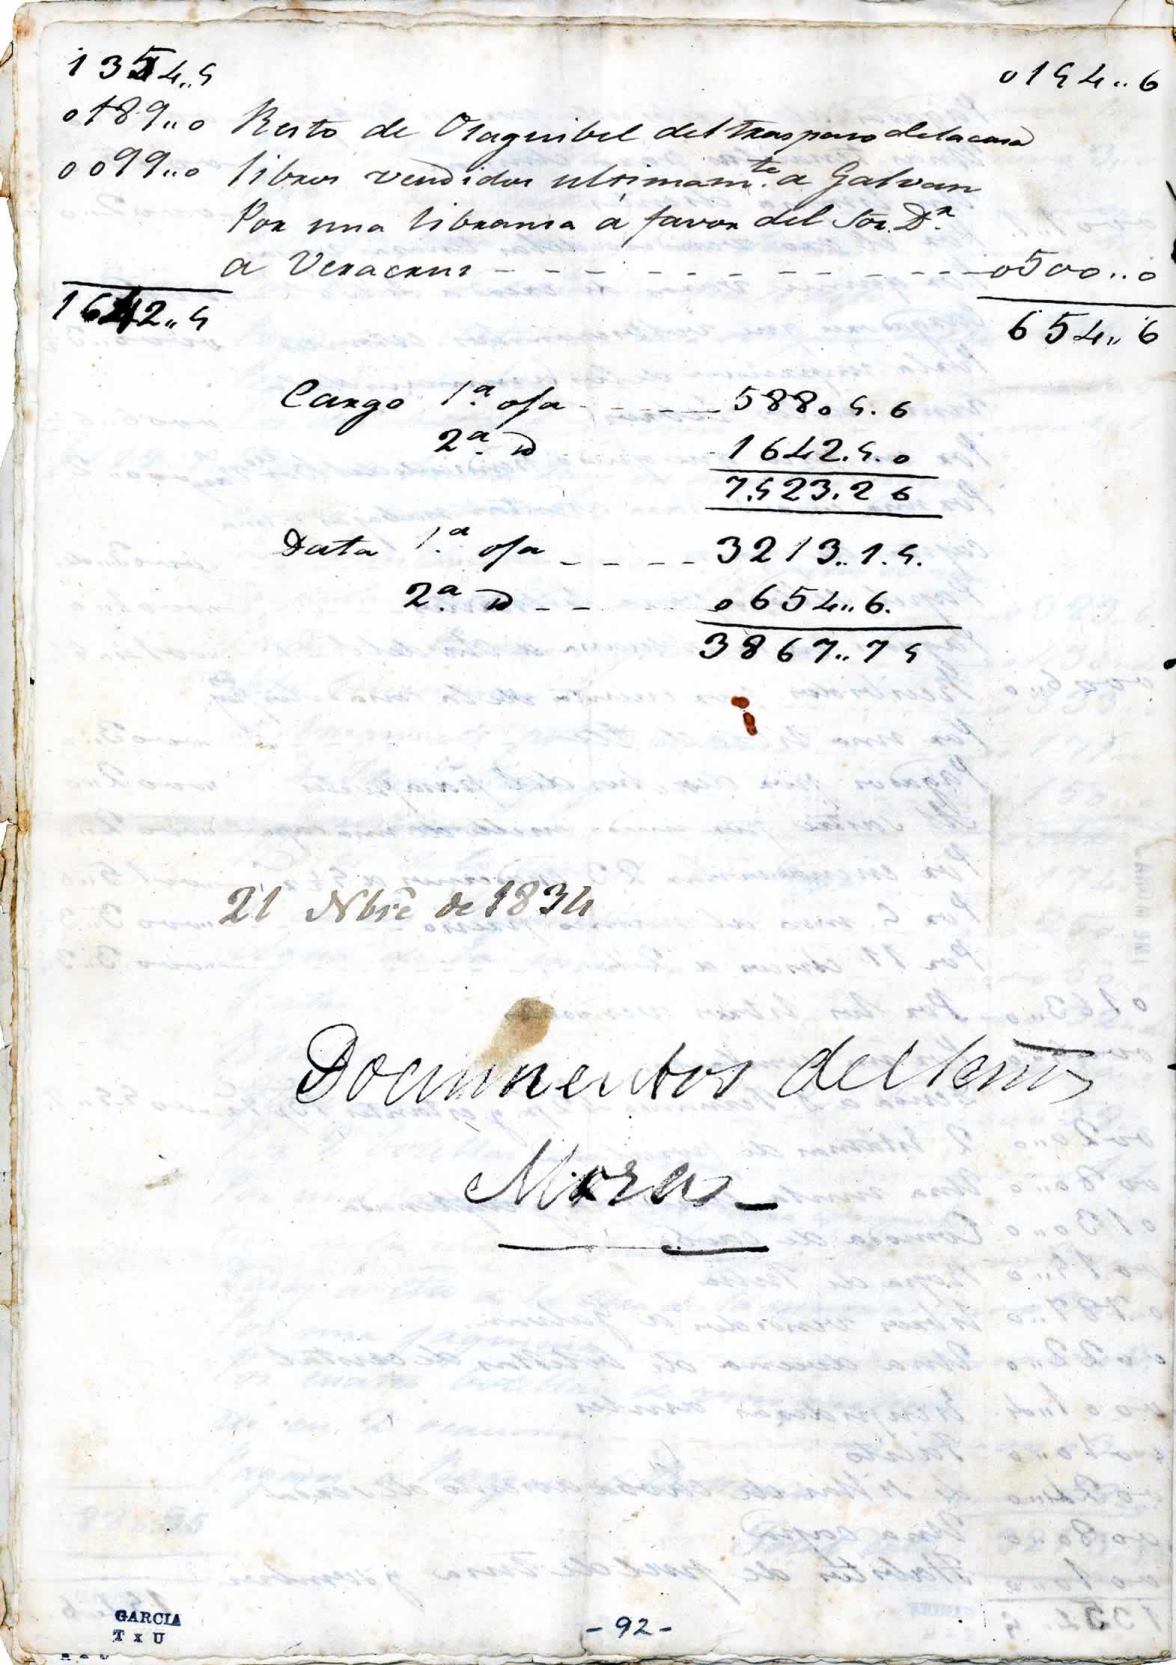 1354..5 0154..6
0189..0 Resto de Olaguibel del traspaso de la casa
0099..0 libros vendidos ultimam.te a Galvan
Por una libransa á favor del Sor. Dn
a Veracrus - - - - - - - - - - - - 0500..0
1642..5 654..6
Cargo 1.a oja - - - - - 5880.5.6
2.a D 1642.5.0
7523.2 6
Data 1.a oja - - - - 3213..1.5.
2.a D - - - 0654..6.
3867..7 5
21 Nbrê de 1834
Documentos del
Mora
GARCIA
T x U
-92-